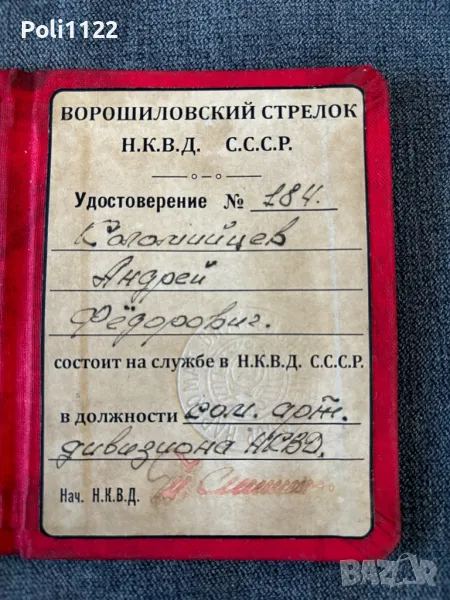 Poli1122
ВОРОШИЛОВСКИЙ СТРЕЛОК
Н.К.В.Д. С.С.С.Р.
Удостоверение № 184.
Коломийцев
Андрей
Фёдорович.
состоит на службе в Н.К.В.Д. С.С.С.Р.
в должности ком. арт.
дивизиона НКВД.
Нач. Н.К.В.Д.
BAZAR